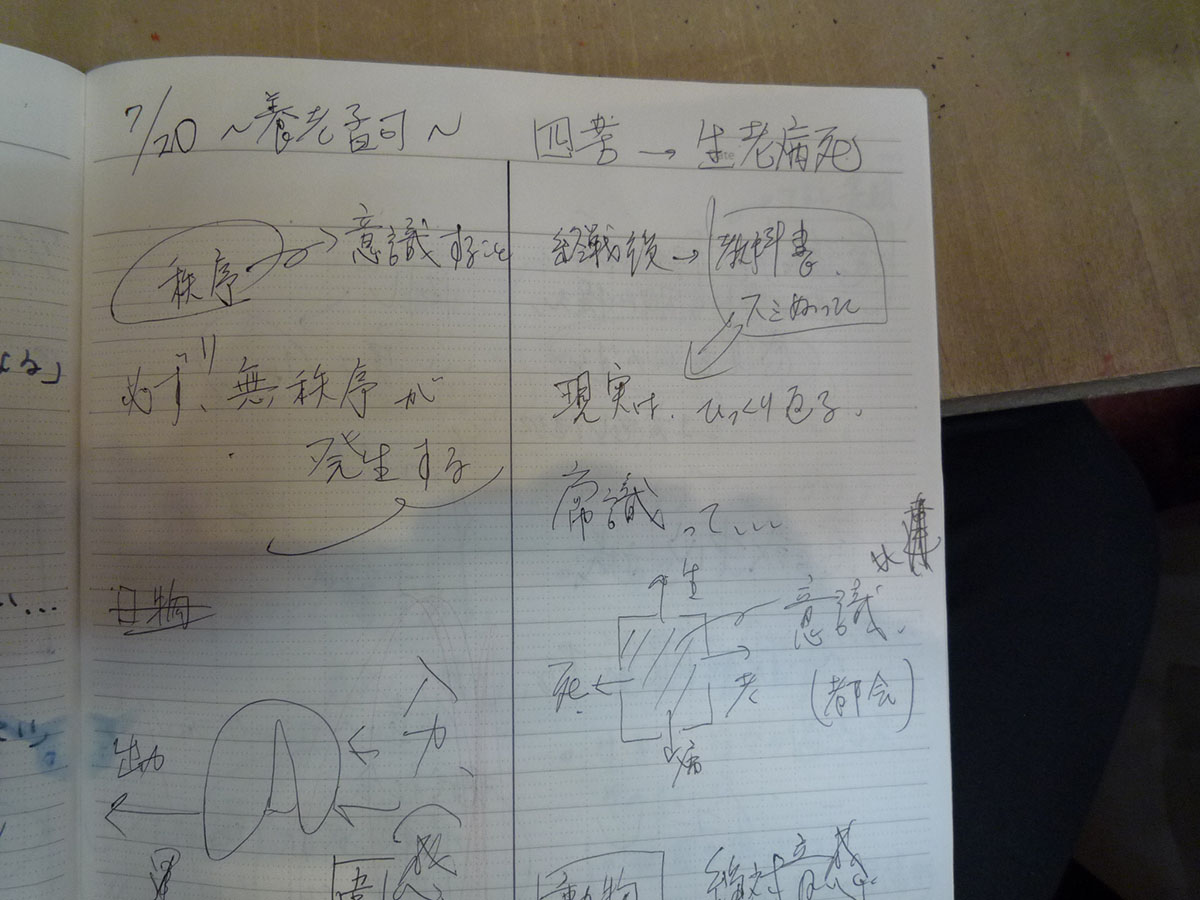 7/20 ～養老孟司～
秩序 → 意識すること
必ず、無秩序が
発生する
日物
入力、
出力
四苦 → 生老病死
終戦後 → 教科書、
スミぬって
現実は、ひっくり返る、
常識って、、、
生
意識、
死
老
(都会)
病
動物
絶対